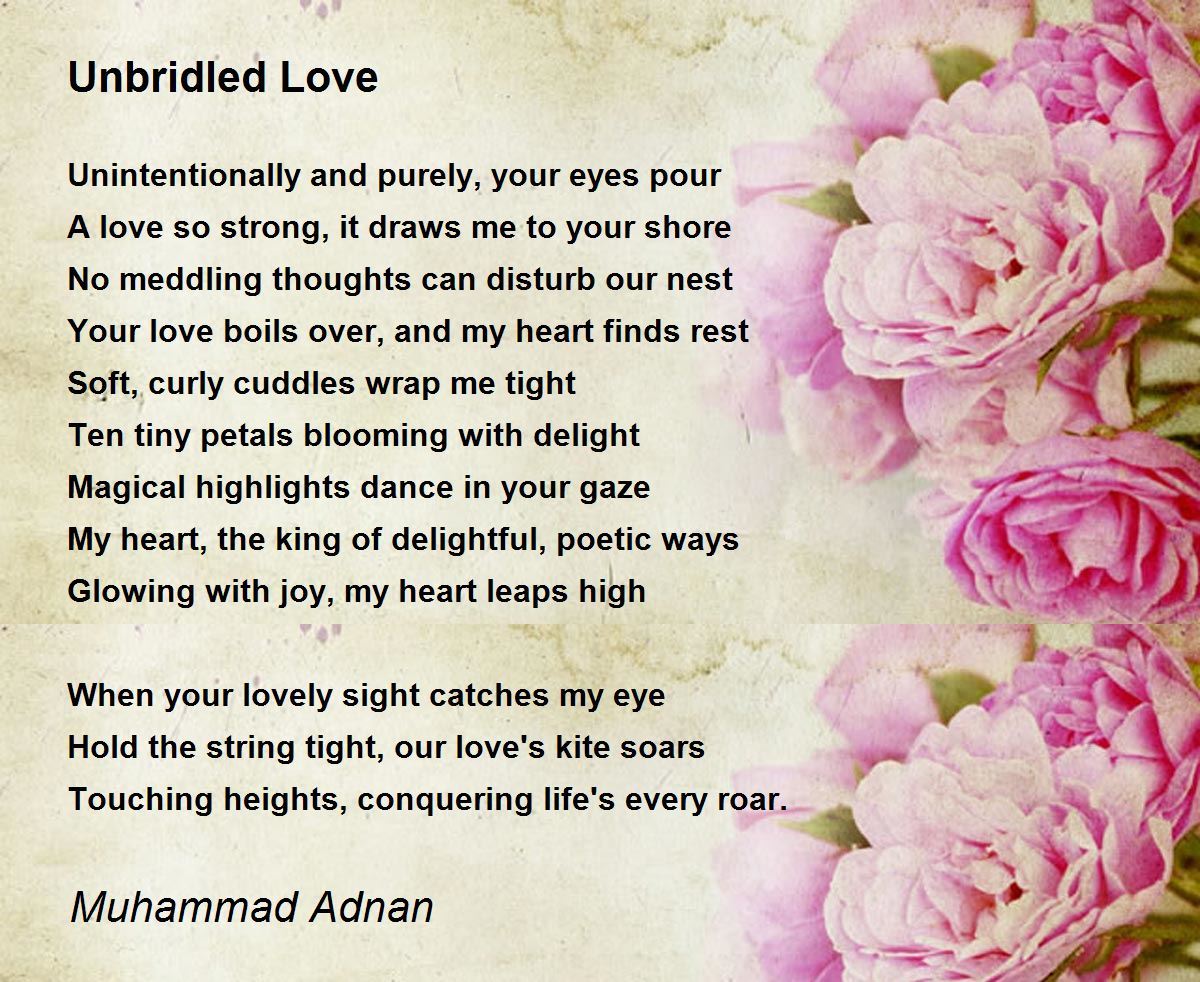 Unbridled Love
Unintentionally and purely, your eyes pour
A love so strong, it draws me to your shore
No meddling thoughts can disturb our nest
Your love boils over, and my heart finds rest
Soft, curly cuddles wrap me tight
Ten tiny petals blooming with delight
Magical highlights dance in your gaze
My heart, the king of delightful, poetic ways
Glowing with joy, my heart leaps high
When your lovely sight catches my eye
Hold the string tight, our love's kite soars
Touching heights, conquering life's every roar.
Muhammad Adnan